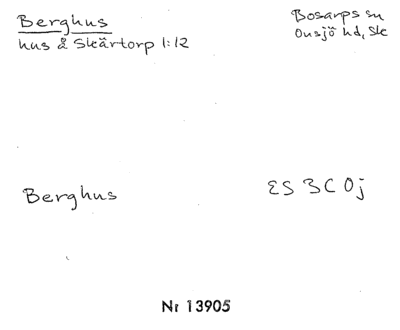 Berghus
Bosarps sn
hus å Skärtorp 1:12
Onsjö hd, Sk
Berghus
ES 3C 0j
Nr 13905